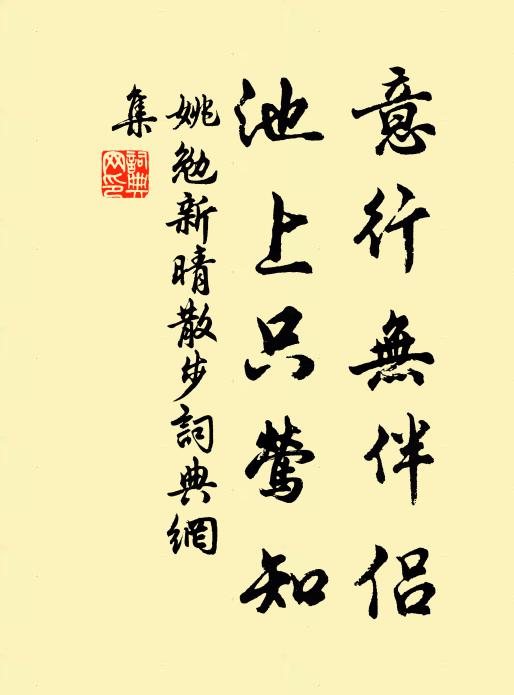 意行無伴侶
池上只鶯知
姚勉新晴散步詞典網
集
詞典
网印